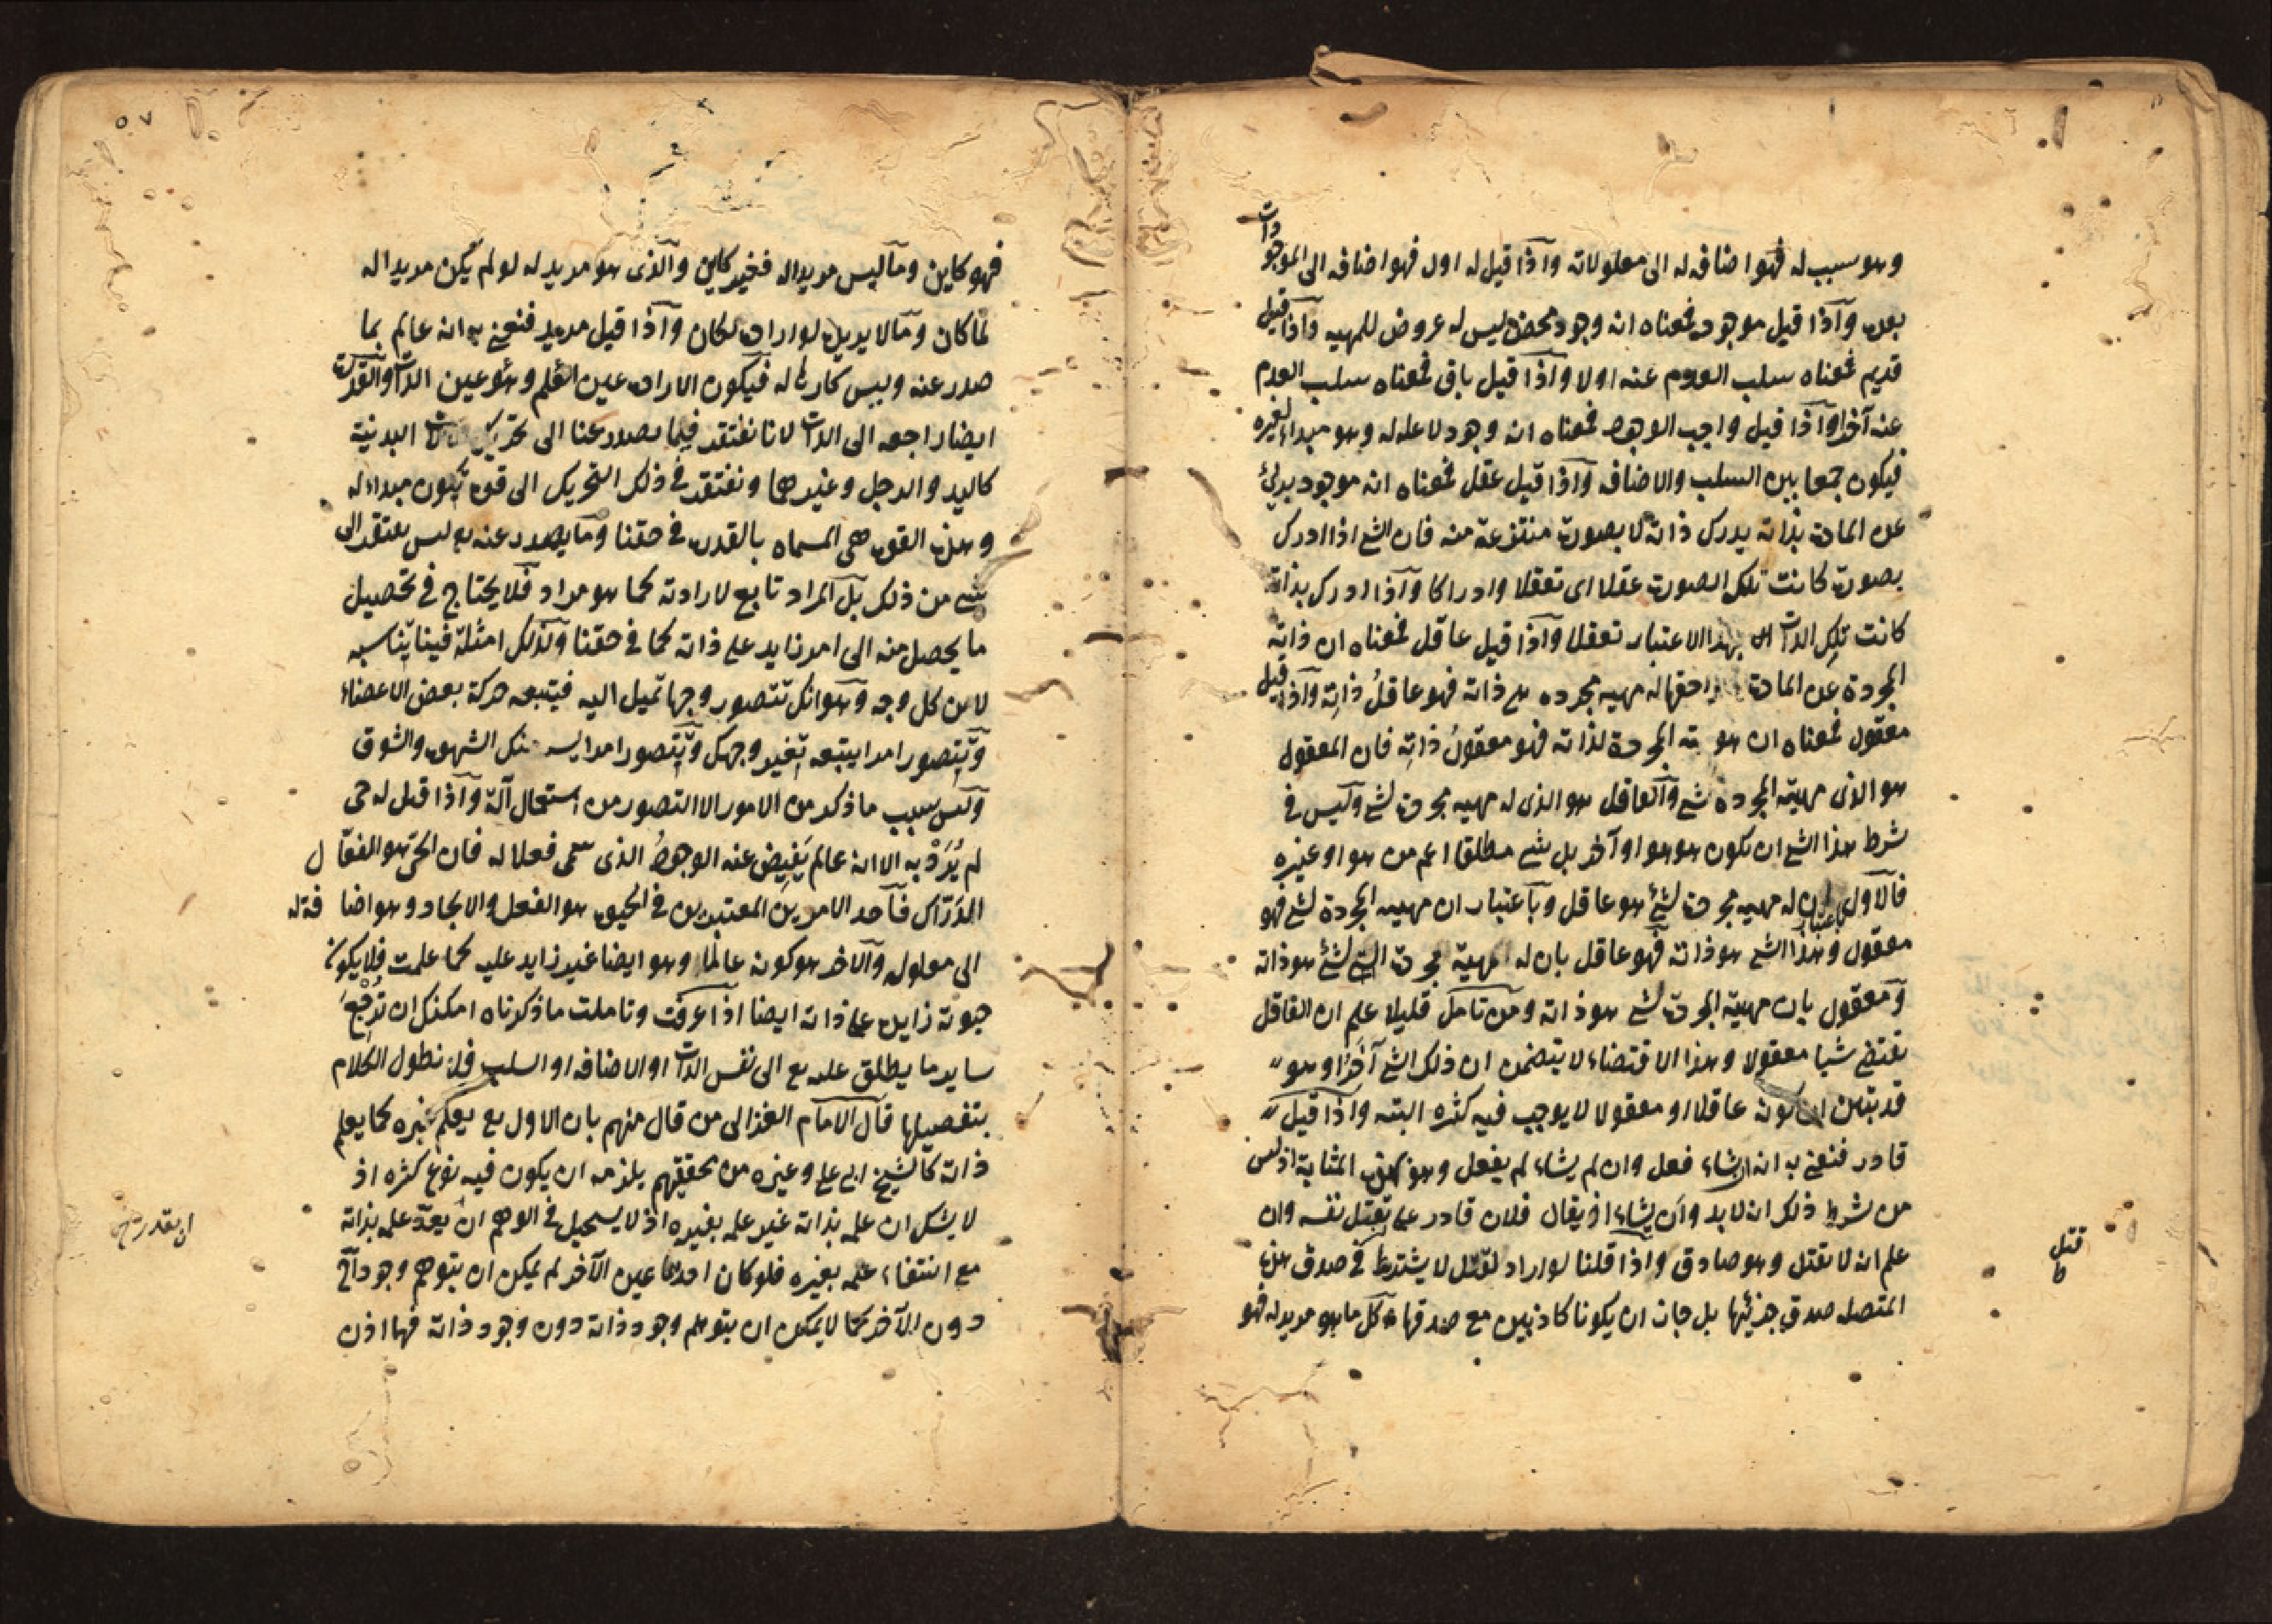 وهو سبب له فهو اضافه له الى معلولاته وآذا قيل له اول فهو اضافه الى الموجودات
بعده وآذا قيل موجود فمعناه انه وجود محض ليس له عروض للمهيه وآذا قيل
قديم فمعناه سلب العدم عنه اولا وآذا قيل باق فمعناه سلب العدم
عنه آخرا وآذا قيل واجب الوجود فمعناه انه وجود لا علة له وهو مبداء لغيره
فيكون جمعا بين السلب والاضافه وآذا قيل عقل فمعناه انه موجود برئ
عن المادة بذاته يدرك ذاته لا بصورة منتزعة منه فان الشئ اذا ادرك
بصورة كانت تلك الصورة عقلا اى تعقلا وادراكا وآذا ادرك بذاته
كانت تلك الذات بهذا الاعتبار تعقلا وآذا قيل عاقل فمعناه ان ذاته
المجردة عن المادة له مهيه مجرده هى ذاته فهو عاقلُ ذاتِه وآذا قيل
معقول فمعناه ان هويته المجردة لذاته فهو معقولُ ذاتِه فان المعقول
هو الذى مهيته المجرده لشئ وآلعاقل هو الذى له مهيه مجردة لشئ وليس فى
شرط هذا الشئ ان يكون هو هو او آخر بل شئ مطلقا اعم من هو او غيره
فآلاول باعتبار ان له مهيه مجردة لشئ هو عاقل وبآعتبار ان مهيته المجردة لشئ فهو
معقول وهذا الشئ هو ذاته فهو عاقل بان له المهية المجردة لشئ هو ذاته
ومعقول بان مهيته المجردة لشئ هو ذاته ومن تامل قليلا علم ان العاقل
يقتضى شيا معقولا وهذا الاقتضاء لا يتضمن ان ذلك الشئ آخرُ او هو
قد تبين ان كونه عاقلا او معقولا لا يوجب فيه كثره البته وآذا قيل
قادر فنعنى به انه ان شاء فعل وان لم يشاء لم يفعل وهو بهذه المثابة اذ ليس
من شرط ذلك ان لا بد وآن يشاء اذ يقال فلان قادر على قتل نفسه وان
علم انه لا يقتل وهو صادق وآذا قلنا لو اراد لقتل لا يشترط فى صدق هذه
المتصله صدق جزئيها بل جاز ان يكونا كاذبين مع صدقها فكل ما هو مريد له فهو
قتل
ط
٥٧
فهو كاين ومآ ليس مريدا له فغير كاين وآلذى هو مريد له لو لم يكن مريدا له
لما كان ومآ لا يريده لو اراده لكان وآذا قيل مريد فنعنى به انه عالم بما
صدر عنه وليس كارها له فيكون الارادة عين العلم وهو عين الذات وآلقدرة
ايضا راجعه الى الذات لانا نفتقر فيما يصدر عنا الى تحريك الآلات البدنية
كاليد والرجل وغيرهما ونفتقر فى ذلك التحريك الى قوة تكون مبداء له
وهذه القوة هى المسماه بالقدرة فى حقنا ومآ يصدر عنه تع ليس يفتقر الى
شئ من ذلك بل آلمراد تابع لارادته كما هو مراد فلا يحتاج فى تحصيل
ما يحصل منه الى امر زايد على ذاته كما فى حقنا ولذلك امثلة فينا يناسبه
لا من كل وجه وهو انك تتصور وجها تميل اليه فيتبعه حركة بعض الاعضاء
وتتصور امرا يتبعه تغير وجهك وتتصور امرا منك الشهوة والشوق
وليس سبب ما ذكر من الامور الا التصور من استعمال آلة وآذا قيل له حى
لم يُرَدْ به الا انه عالم يَفيض عنه الوجودُ الذى سمى فعلا له فان الحىّ هو الفعّال
الدرّاك فآحد الامرين المعتبرين فى الحيوة هو الفعل والايجاد وهو اضافة له
الى معلوله وآلآخر هو كونه عالما وهو ايضا غير زايد عليه كما علمت فلا يكون
حيوته زايده على ذاته ايضا اذا عرفت وتاملت ما ذكرناه امكنك ان تُرجِعَ
ساير ما يطلق عليه تع الى نفس الذات او الاضافه او السلب فلا نطول الكلام
بتفصيلها قآل الامام الغزالى من قال منهم بان الاول تع يعلم غيره كما يعلم
ذاته كآلشيخ ابى على وغيره من محققيهم يلزمه ان يكون فيه نوع كثره اذ
لا يشك ان علمه بذاته غير علمه بغيره اذ لا يستحيل فى الوهم ان يعدّ علمه بذاته
مع انتفاء علمه بغيره فلو كان احدهما عين الآخر لم يمكن ان يتوهم وجود احد
دون الآخر كما لا يمكن ان يتوهم وجود ذاته دون وجود ذاته فهما اذن
ان يقدر